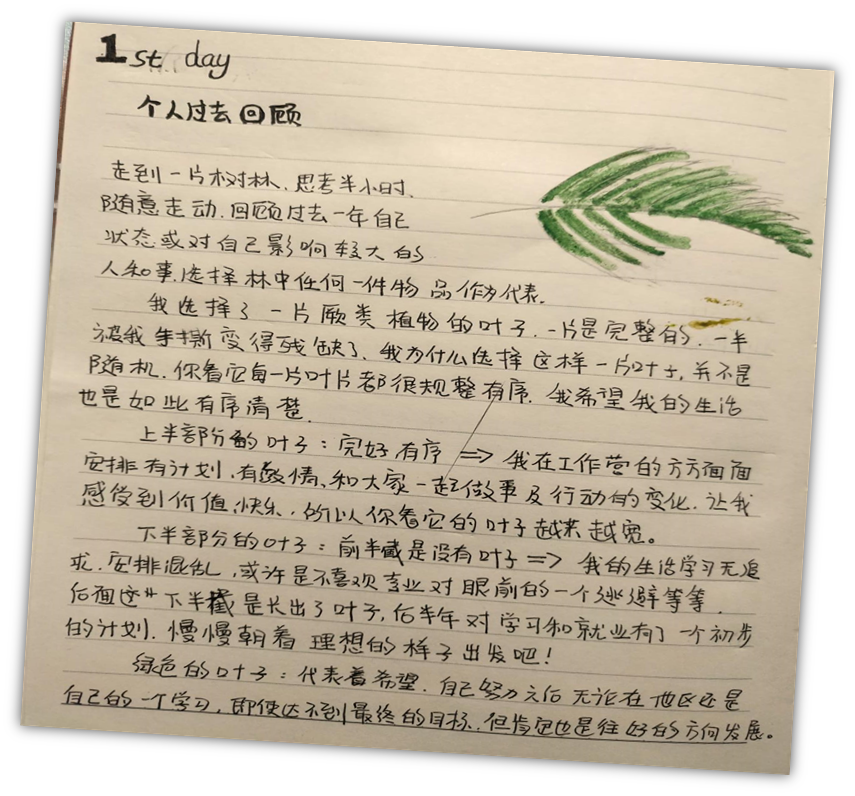 1st day
个人过去回顾
走到一片树林、思考半小时、
随意走动.回顾过去一年自己
状态或对自己影响较大的
人和事.选择林中任何一件物品作为代表.
我选择了一片厥类植物的叶子.一片是完整的.一半
被我手撕变得残缺了、我为什么选择这样一片叶子,并不是
随机.你看它每一片叶片都很规整有序.我希望我的生活
也是如此有序清楚.
上半部分的叶子:完好有序 => 我在工作营的方方面面
安排有计划,有激情、和大家一起做事及行动的变化.让我
感受到价值、快乐.所以你看它的叶子越来越宽。
下半部分的叶子:前半截是没有叶子=> 我的生活学习无追
求.安排混乱,或许是不喜欢专业对眼前的一个逃避等等.
后面这"下半截是长出了叶子,后半年对学习和就业有了一个初步
的计划.慢慢朝着理想的样子出发吧!
绿色的叶子:代表着希望.自己努力之后无论在地区还是
自己的一个学习,即使达不到最终的目标.但肯定也是往好的方向发展。